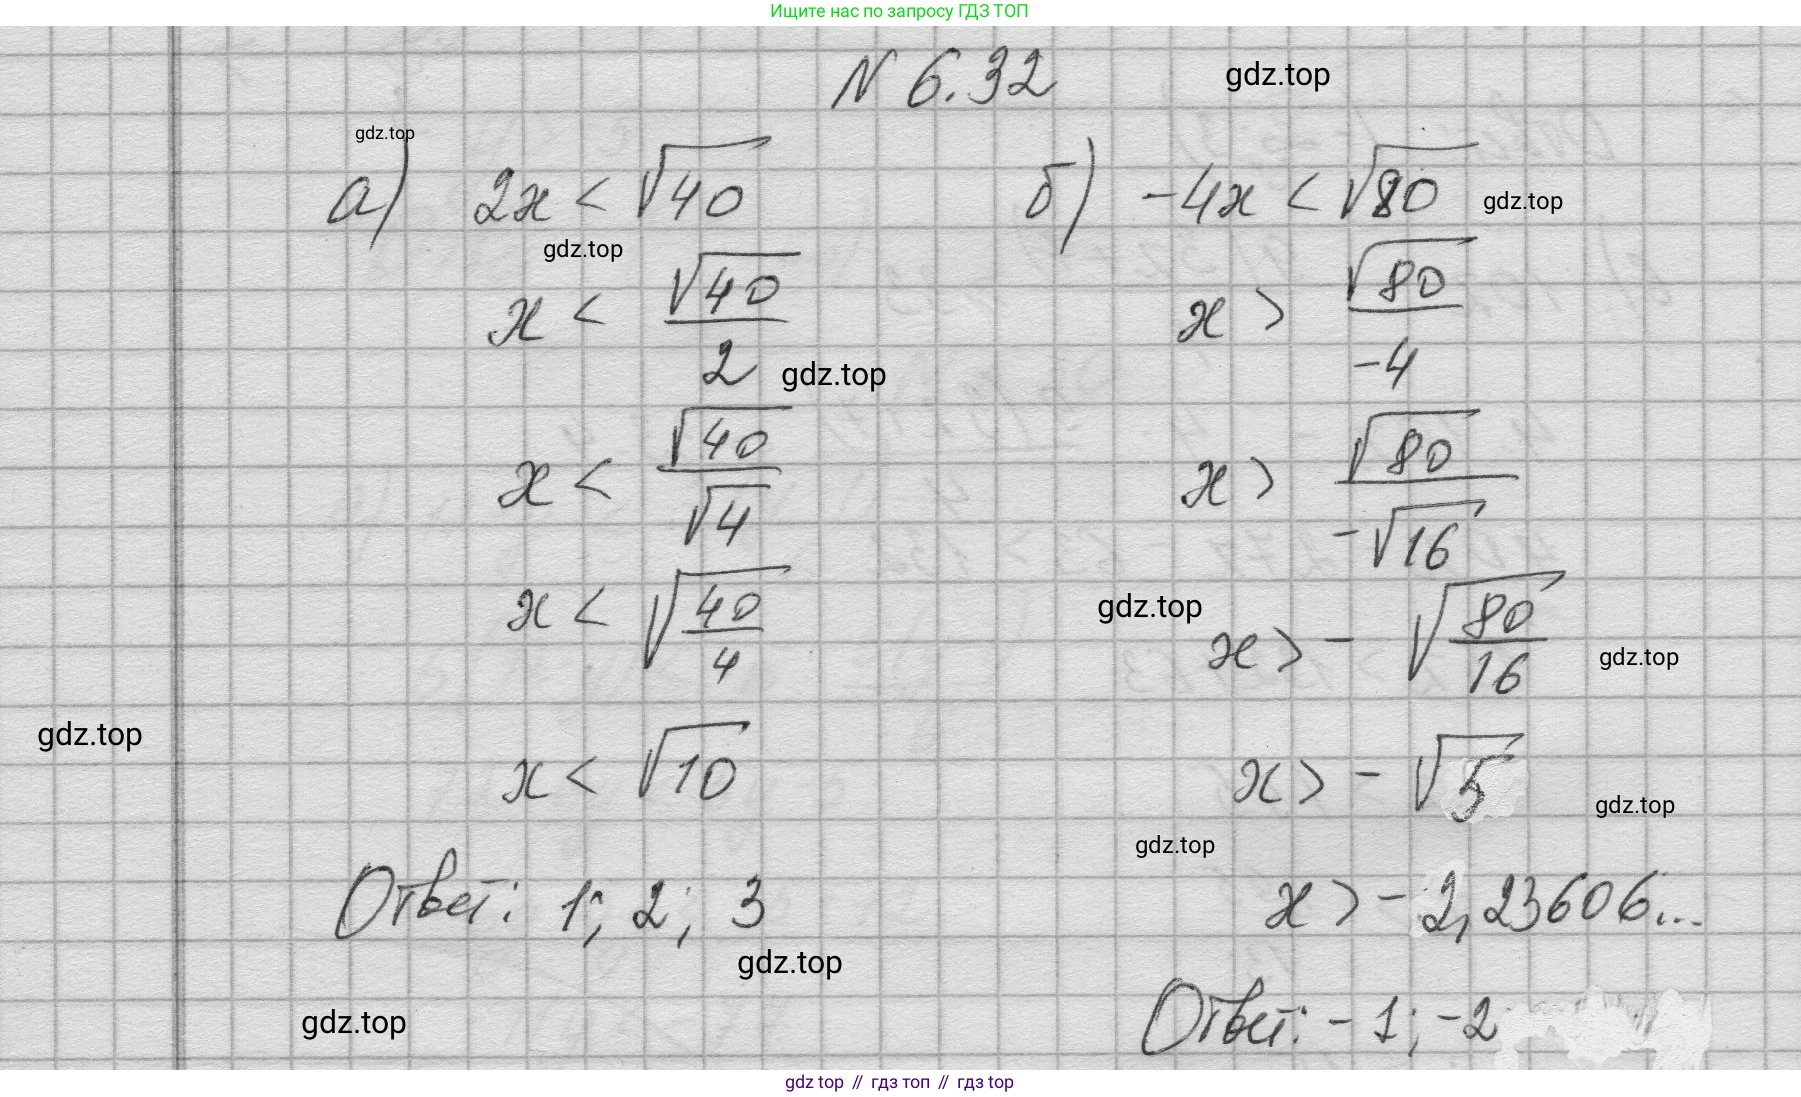 Ищите нас по запросу ГДЗ ТОП
N 6.32
gdz.top
gdz.top
а) 2x < √40
gdz.top
x < √40/2
gdz.top
x < √40/√4
x < √(40/4)
x < √10
gdz.top
Ответ: 1; 2; 3
gdz.top
gdz.top
б) -4x < √80
gdz.top
x > √80/-4
x > √80/-√16
gdz.top
x > -√(80/16)
gdz.top
x > -√5
gdz.top
gdz.top
x > -2,23606...
Ответ: -1; -2
gdz top // гдз топ // gdz top